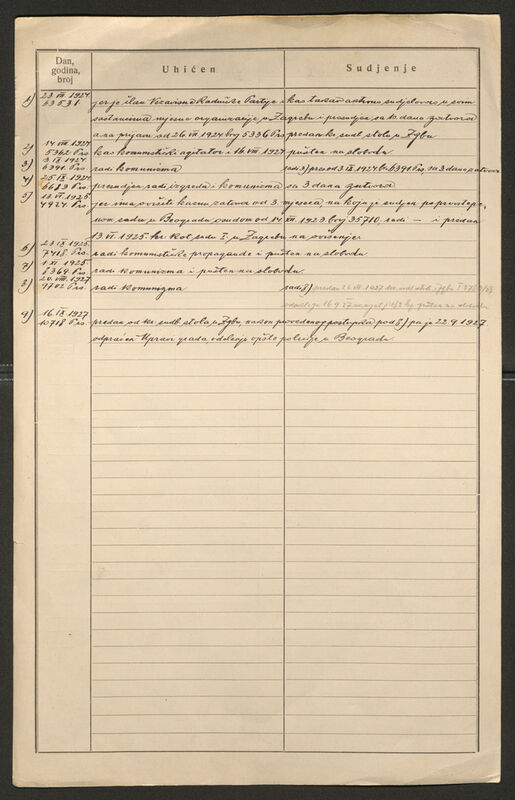 Dan, godina, broj
Uhićen
Sudjenje
1) 23. VII. 1924 63531. jer je član Nezavisne Radničke Partije i kao takav aktivno sudjelovao u svim
sastancima mjesne organizacije u Zagrebu i presudjen sa 10 dana zatvora
a na prijavu od 26. VII. 1924 broj 5336 Prs. predan kr. sudb. stolu u Zgbu
2) 14 VIII 1924 5362 Prs. kao komunistički agitator i 16. VIII. 1924 pušten na slobodu
3) 3 IX 1924 6391 Prs. radi komunizma radi 3) presud 3 IX 1924 br 6391 Prs. sa 3 dana zatvora
4) 25 IX 1924 6683 Prs. presudjen radi izgreda i komunizma sa 3 dana zatvora
5) 13. VI 1925 4924. Prs. jer ima izvršiti kaznu zatvora od 3. mjeseca na koju je sudjen po prvostep.
nom sudu u Beogradu osudom od 14. XII. 1923. broj 35710. radi — i predan
13. VI. 1925. kr. kot. sudu I. u Zagrebu na izvršenje.
6) 23 IX 1925. 7418 Prs. radi komunističke propagande i pušten na slobodu
7) 1 XI 1925 8369 Prs. radi komunizma i pušten na slobodu.
8) 24. VIII. 1927 9702 Prs. radi komunizma radi 8) predan 26 VIII. 1927 kr. sudb. stolu
9) 16 IX 1927 10718 Prs. predan od kr. sudb. stola u Zgbu, nakon provedenog postupka pod 8) pa je 22. 9. 1927
otpraćen Upravi grada odelenje opšte policije u Beogradu